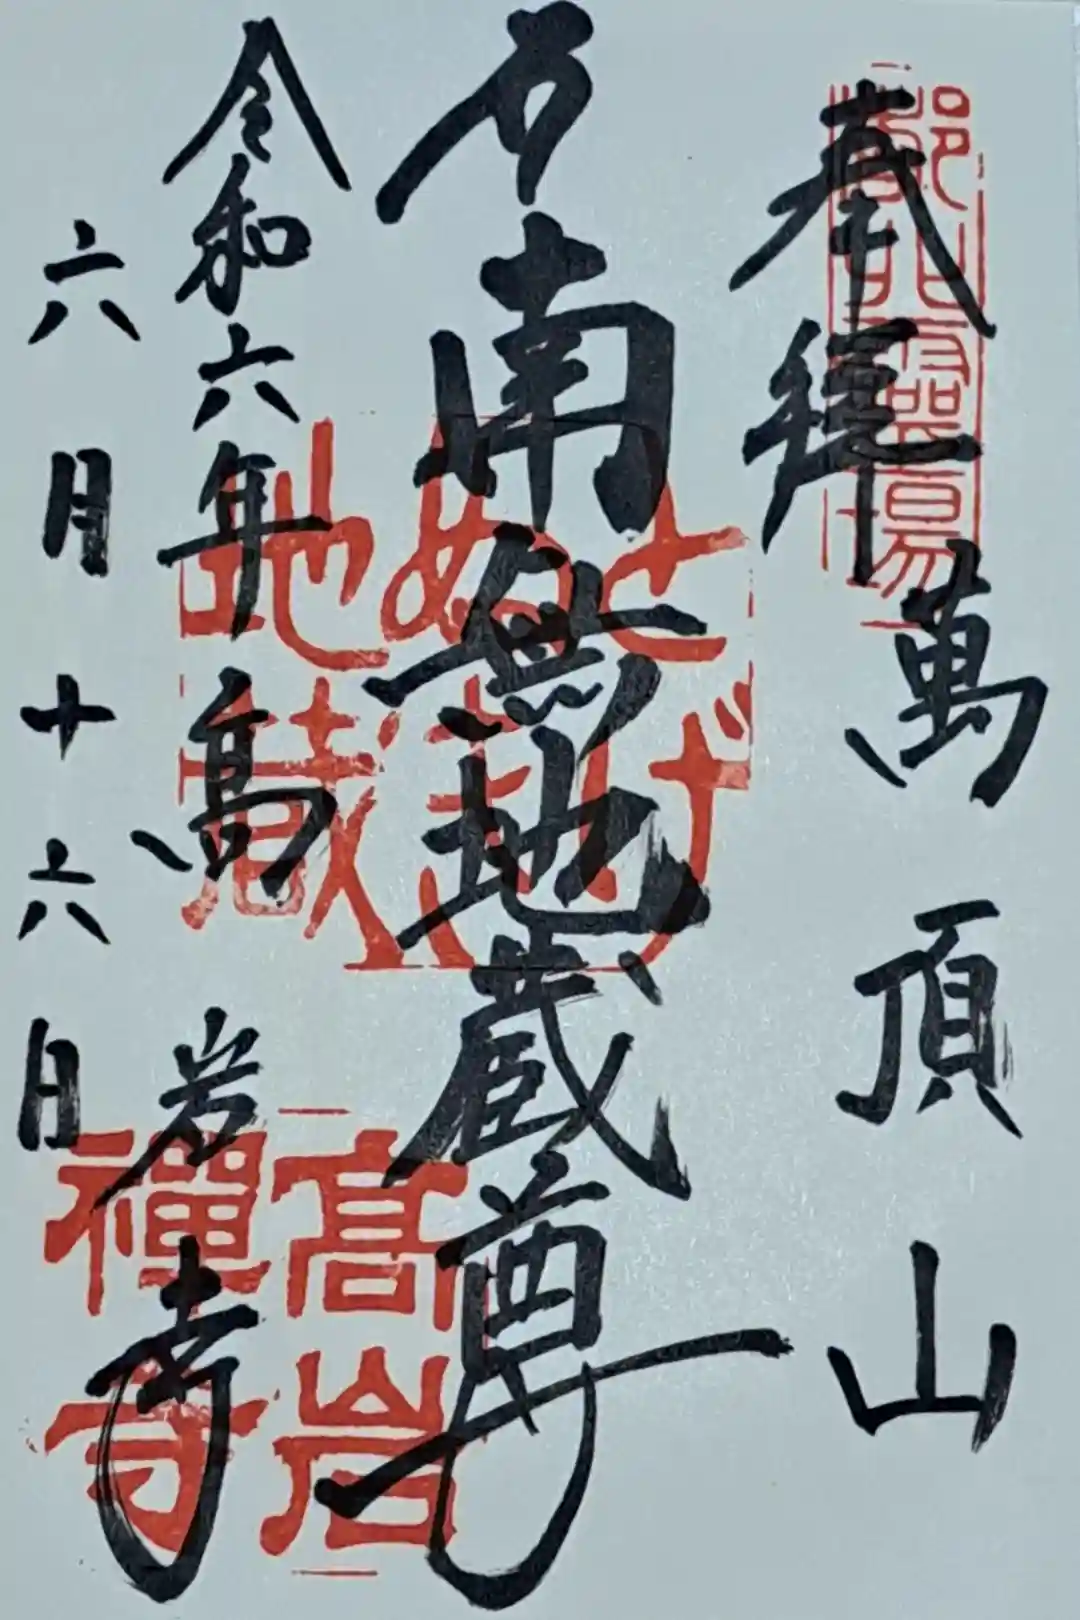 奉拝 萬頂山
南無地蔵尊
令和六年 高岩寺
六月十六日
とげ
ぬき
地蔵
髙岩
禪寺